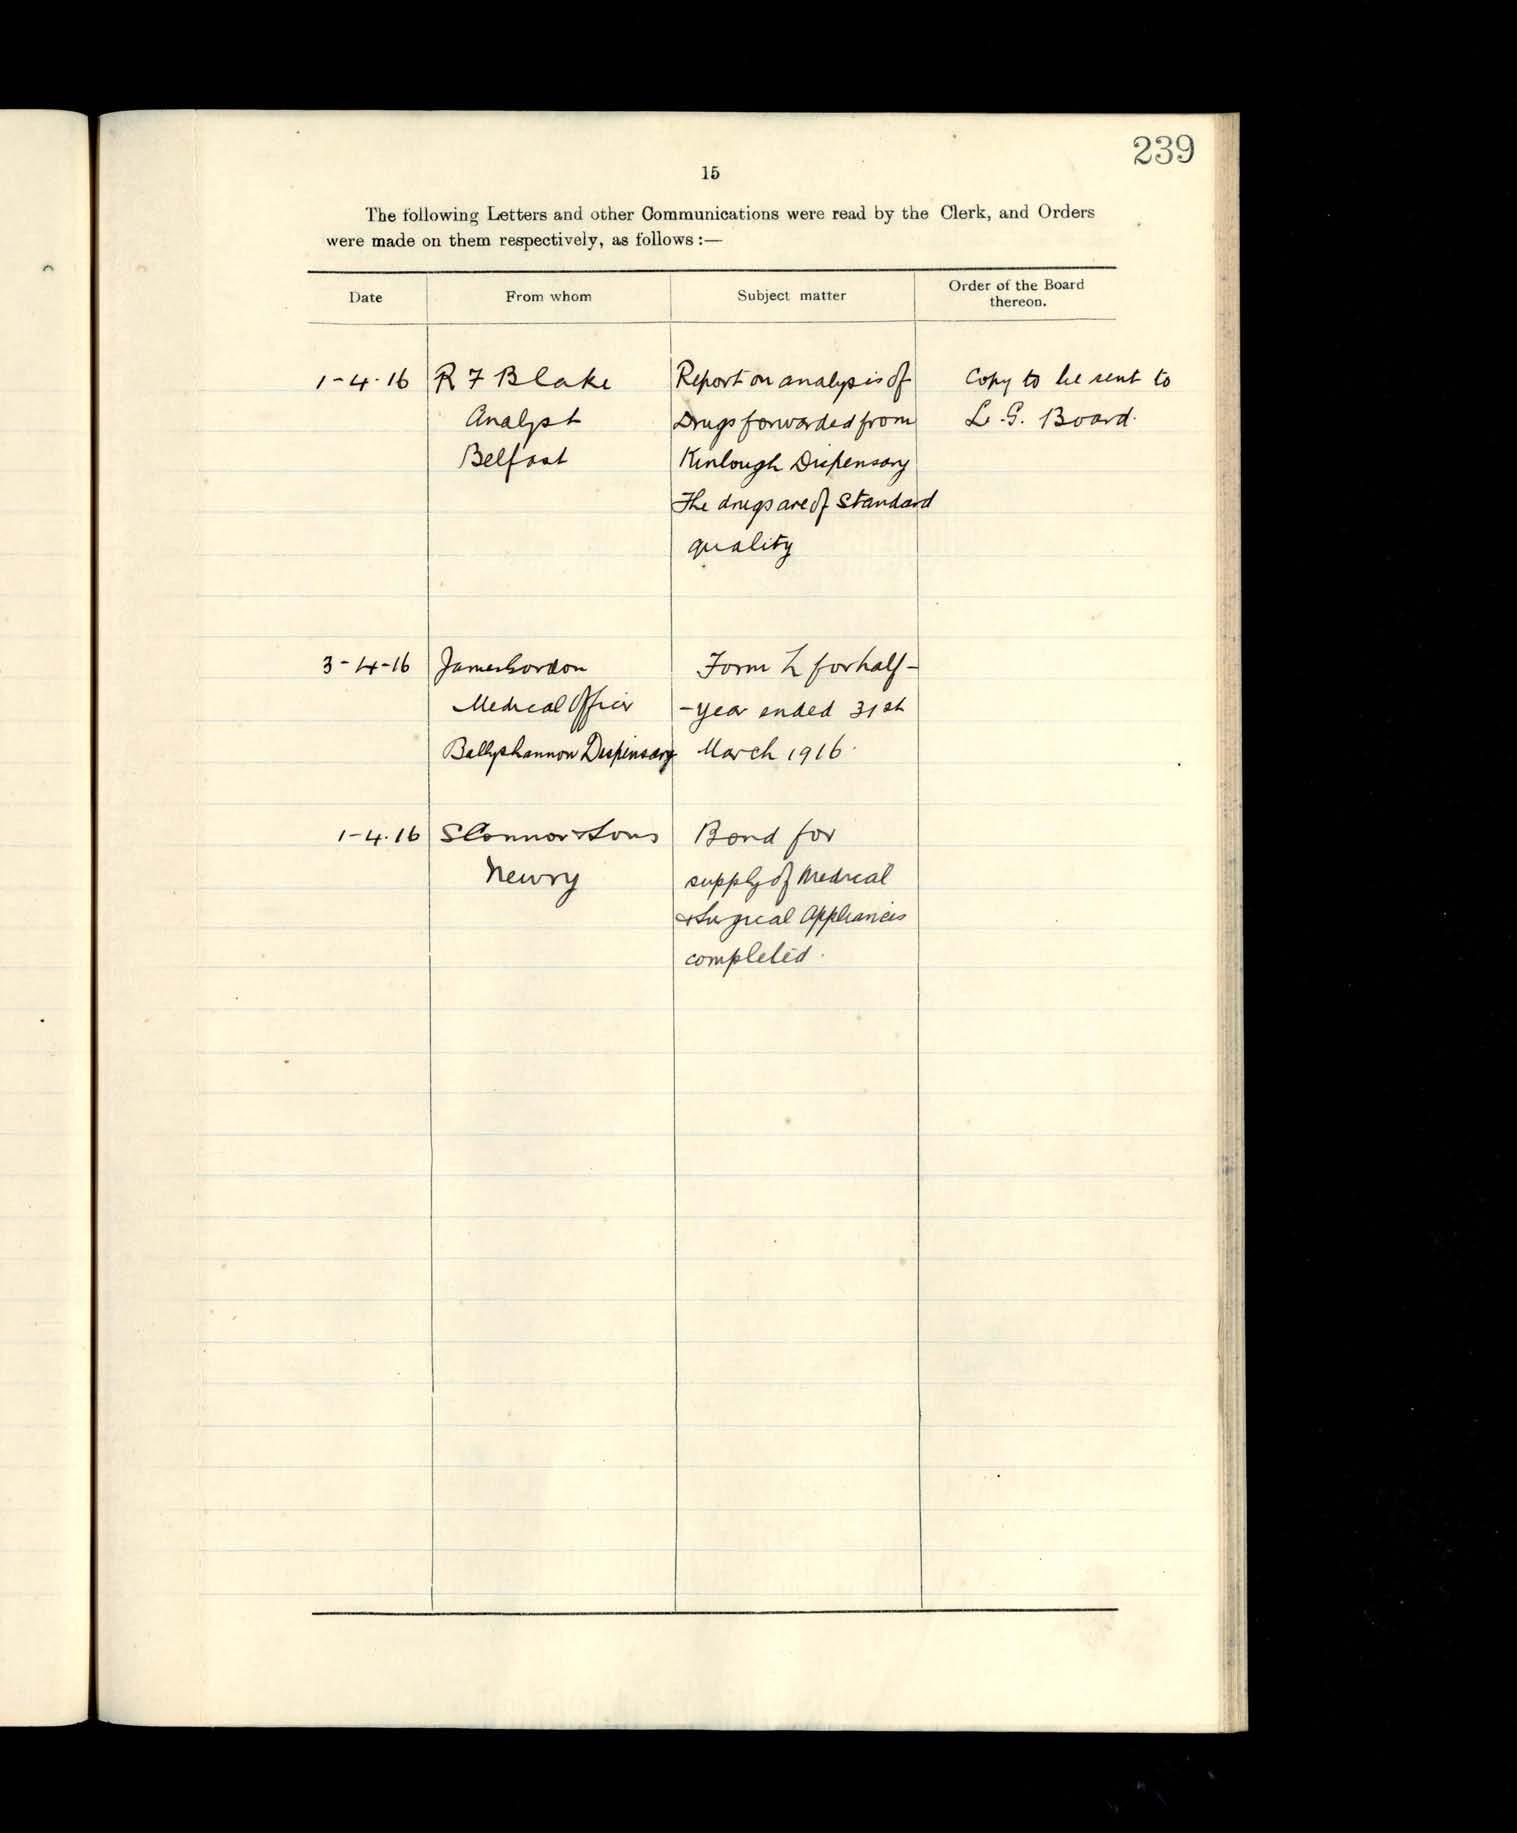 239
15
The following Letters and other Communications were read by the Clerk, and Orders
were made on them respectively, as follows :—
Date From whom Subject matter Order of the Board thereon.
1-4-16 R F Blake Report on analysis of Copy to be sent to
Analyst Drugs forwarded from L. G. Board.
Belfast Kinlough Dispensary
The drugs are of Standard
quality
3-4-16 James Gordon Form L for half-
Medical Officer -year ended 31st
Ballyshannon Dispensary March 1916.
1-4-16 S Connor & Sons Bond for
Newry supply of Medical
& Surgical Appliances
completed.